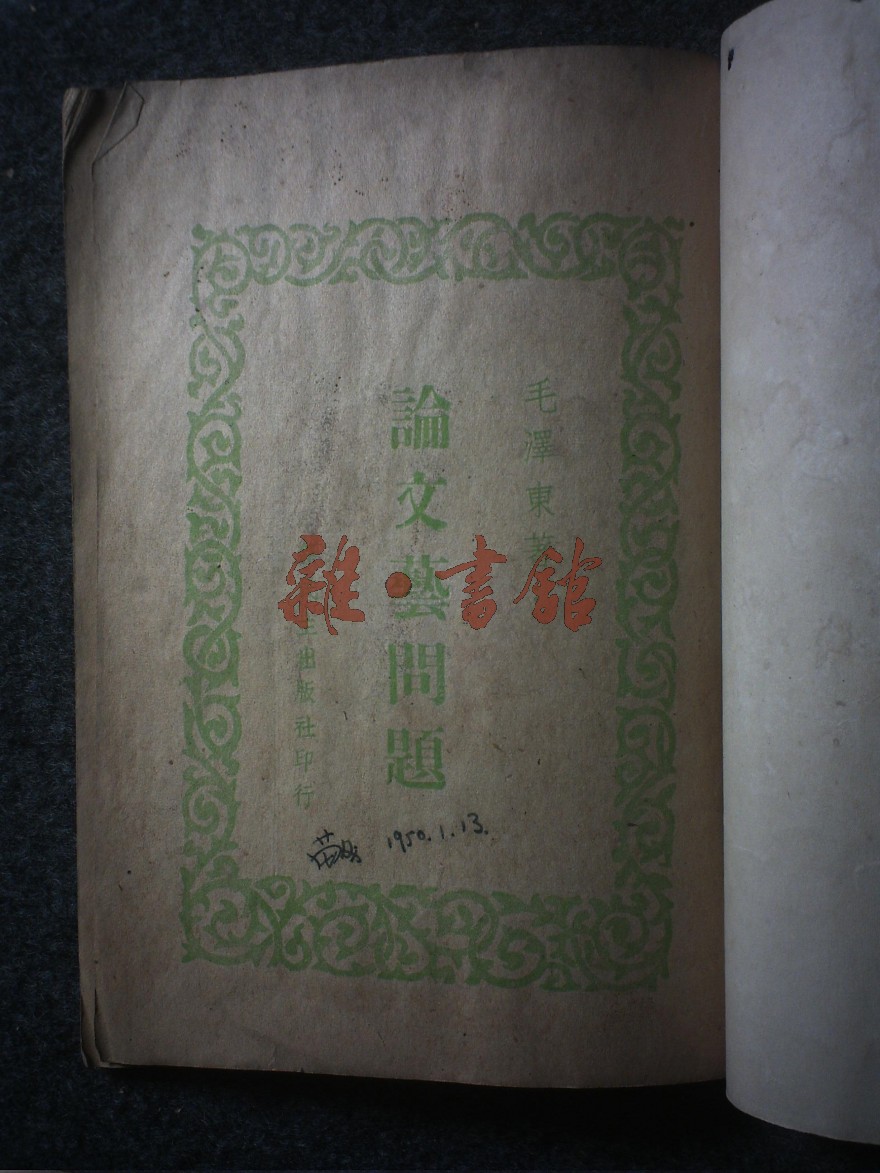 毛澤東著
論文藝問題
出版社印行
1950.1.13.
雜·書館